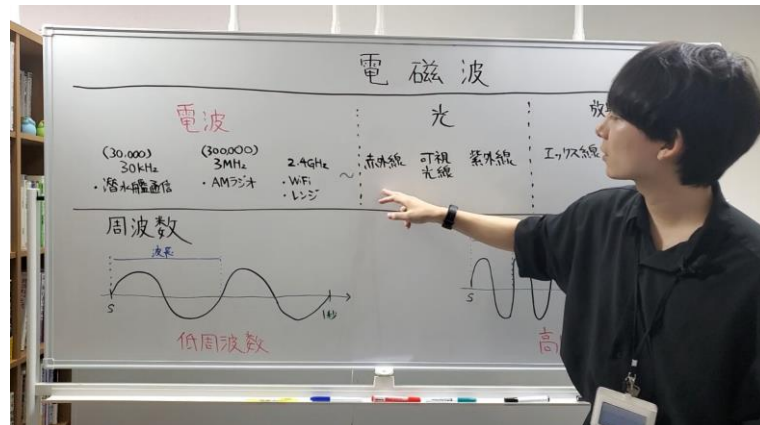 電磁波
電波
光
放
(30.000)
30kHz
・潜水艦通信
(300,000)
3MHz
・AMラジオ
2.4GHz
・WiFi
・レンジ
～
赤外線
可視
光線
紫外線
エックス線
周波数
波長
S
1秒
低周波数
S
高